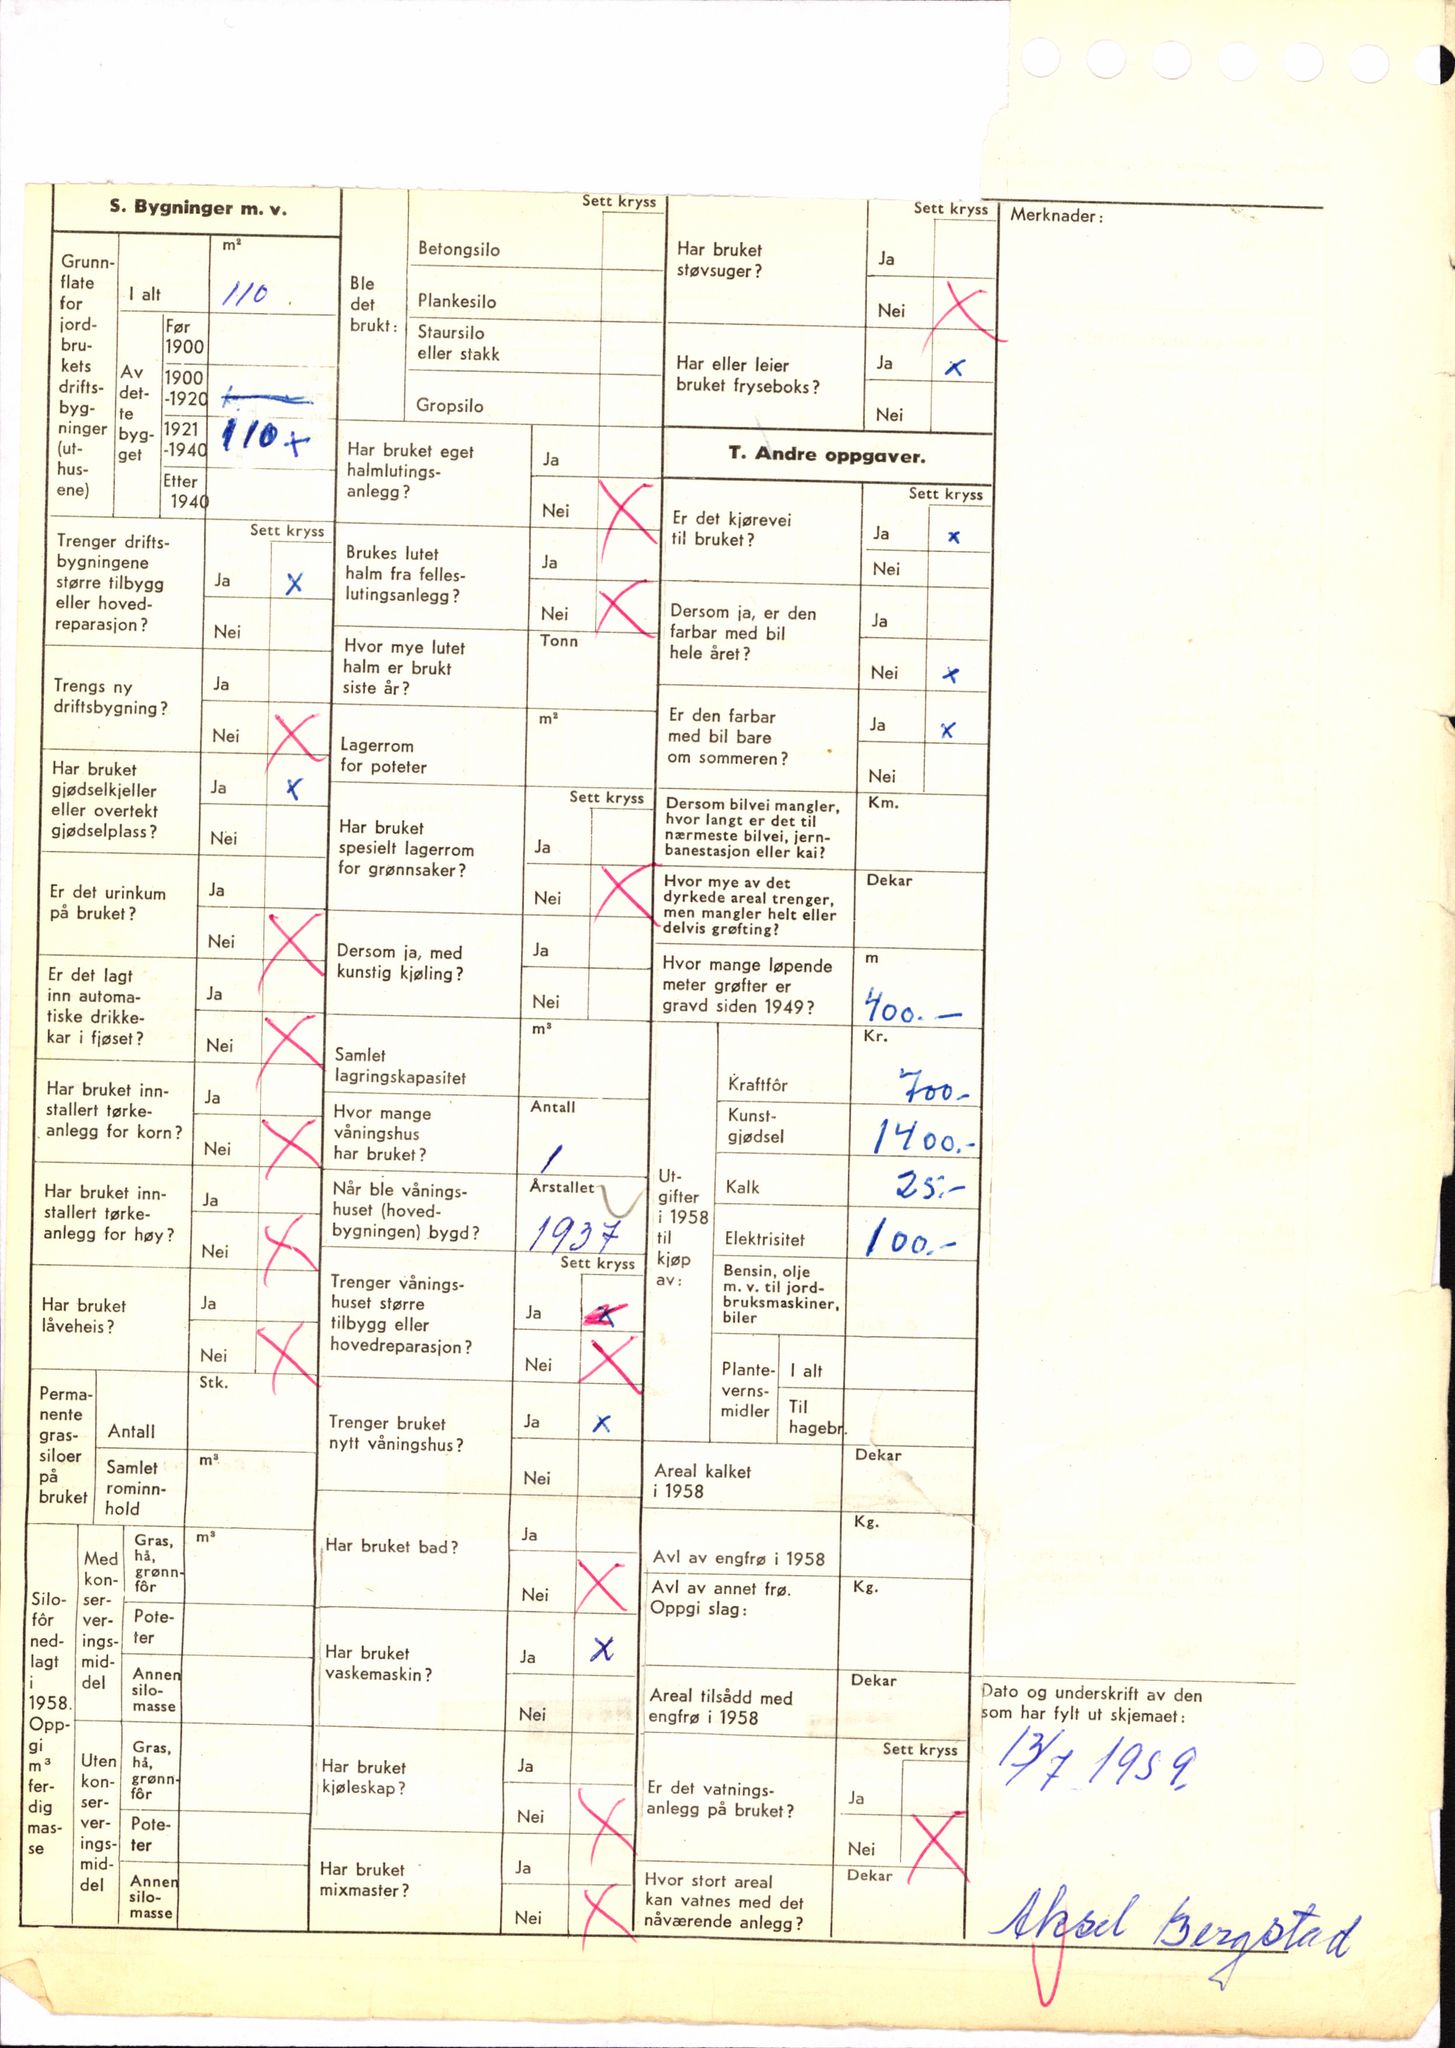 S. Bygninger m. v.
Grunn-
flate
for
jord-
bru-
kets
drifts-
byg-
ninger
(ut-
hus-
ene)
m²
I alt
110
Av
det-
te
byg-
get
Før
1900
1900
-1920
1921
-1940
110 +
Etter
1940
Sett kryss
Trenger drifts-
bygningene
større tilbygg
eller hoved-
reparasjon?
Ja x
Nei
Trengs ny
driftsbygning?
Ja
Nei X
Har bruket
gjødselkjeller
eller overtekt
gjødselplass?
Ja x
Nei
Er det urinkum
på bruket?
Ja
Nei X
Er det lagt
inn automa-
tiske drikke-
kar i fjøset?
Ja
Nei X
Har bruket inn-
stallert tørke-
anlegg for korn?
Ja
Nei X
Har bruket inn-
stallert tørke-
anlegg for høy?
Ja
Nei X
Har bruket
låveheis?
Ja
Nei X
Perma-
nente
gras-
siloer
på
bruket
Antall
Stk.
Samlet
rominn-
hold
m³
Silo-
fôr
ned-
lagt
i
1958.
Opp-
gi
m³
fer-
dig
mas-
se
Med
kon-
ser-
ver-
ings-
mid-
del
Gras,
hå,
grønn-
fôr
m³
Pote-
ter
Annen
silo-
masse
Uten
kon-
ser-
ver-
ings-
mid-
del
Gras,
hå,
grønn-
fôr
Pote-
ter
Annen
silo-
masse
Ble
det
brukt:
Sett kryss
Betongsilo
Plankesilo
Staursilo
eller stakk
Gropsilo
Har bruket eget
halmlutings-
anlegg?
Ja
Nei X
Brukes lutet
halm fra felles-
lutingsanlegg?
Ja
Nei X
Hvor mye lutet
halm er brukt
siste år?
Tonn
Lagerrom
for poteter
m²
Sett kryss
Har bruket
spesielt lagerrom
for grønnsaker?
Ja
Nei X
Dersom ja, med
kunstig kjøling?
Ja
Nei
Samlet
lagringskapasitet
m³
Hvor mange
våningshus
har bruket?
Antall
1
Når ble vånings-
huset (hoved-
bygningen) bygd?
Årstallet
1937
Sett kryss
Trenger vånings-
huset større
tilbygg eller
hovedreparasjon?
Ja x
Nei X
Trenger bruket
nytt våningshus?
Ja x
Nei
Har bruket bad?
Ja
Nei X
Har bruket
vaskemaskin?
Ja x
Nei
Har bruket
kjøleskap?
Ja
Nei X
Har bruket
mixmaster?
Ja
Nei X
Sett kryss
Har bruket
støvsuger?
Ja
Nei X
Har eller leier
bruket fryseboks?
Ja x
Nei
T. Andre oppgaver.
Sett kryss
Er det kjørevei
til bruket?
Ja x
Nei
Dersom ja, er den
farbar med bil
hele året?
Ja
Nei x
Er den farbar
med bil bare
om sommeren?
Ja x
Nei
Dersom bilvei mangler,
hvor langt er det til
nærmeste bilvei, jern-
banestasjon eller kai?
Km.
Hvor mye av det
dyrkede areal trenger,
men mangler helt eller
delvis grøfting?
Dekar
Hvor mange løpende
meter grøfter er
gravd siden 1949?
m
400.—
Ut-
gifter
i 1958
til
kjøp
av:
Kr.
Kraftfôr 700.-
Kunst-
gjødsel 1400.-
Kalk 25.-
Elektrisitet 100.-
Bensin, olje
m. v. til jord-
bruksmaskiner,
biler
Plante-
verns-
midler
I alt
Til
hagebr.
Areal kalket
i 1958
Dekar
Avl av engfrø i 1958
Kg.
Avl av annet frø.
Oppgi slag:
Kg.
Areal tilsådd med
engfrø i 1958
Dekar
Sett kryss
Er det vatnings-
anlegg på bruket?
Ja
Nei X
Hvor stort areal
kan vatnes med det
nåværende anlegg?
Dekar
Merknader:
Dato og underskrift av den
som har fylt ut skjemaet:
13/7 1959.
Aksel Bergstad